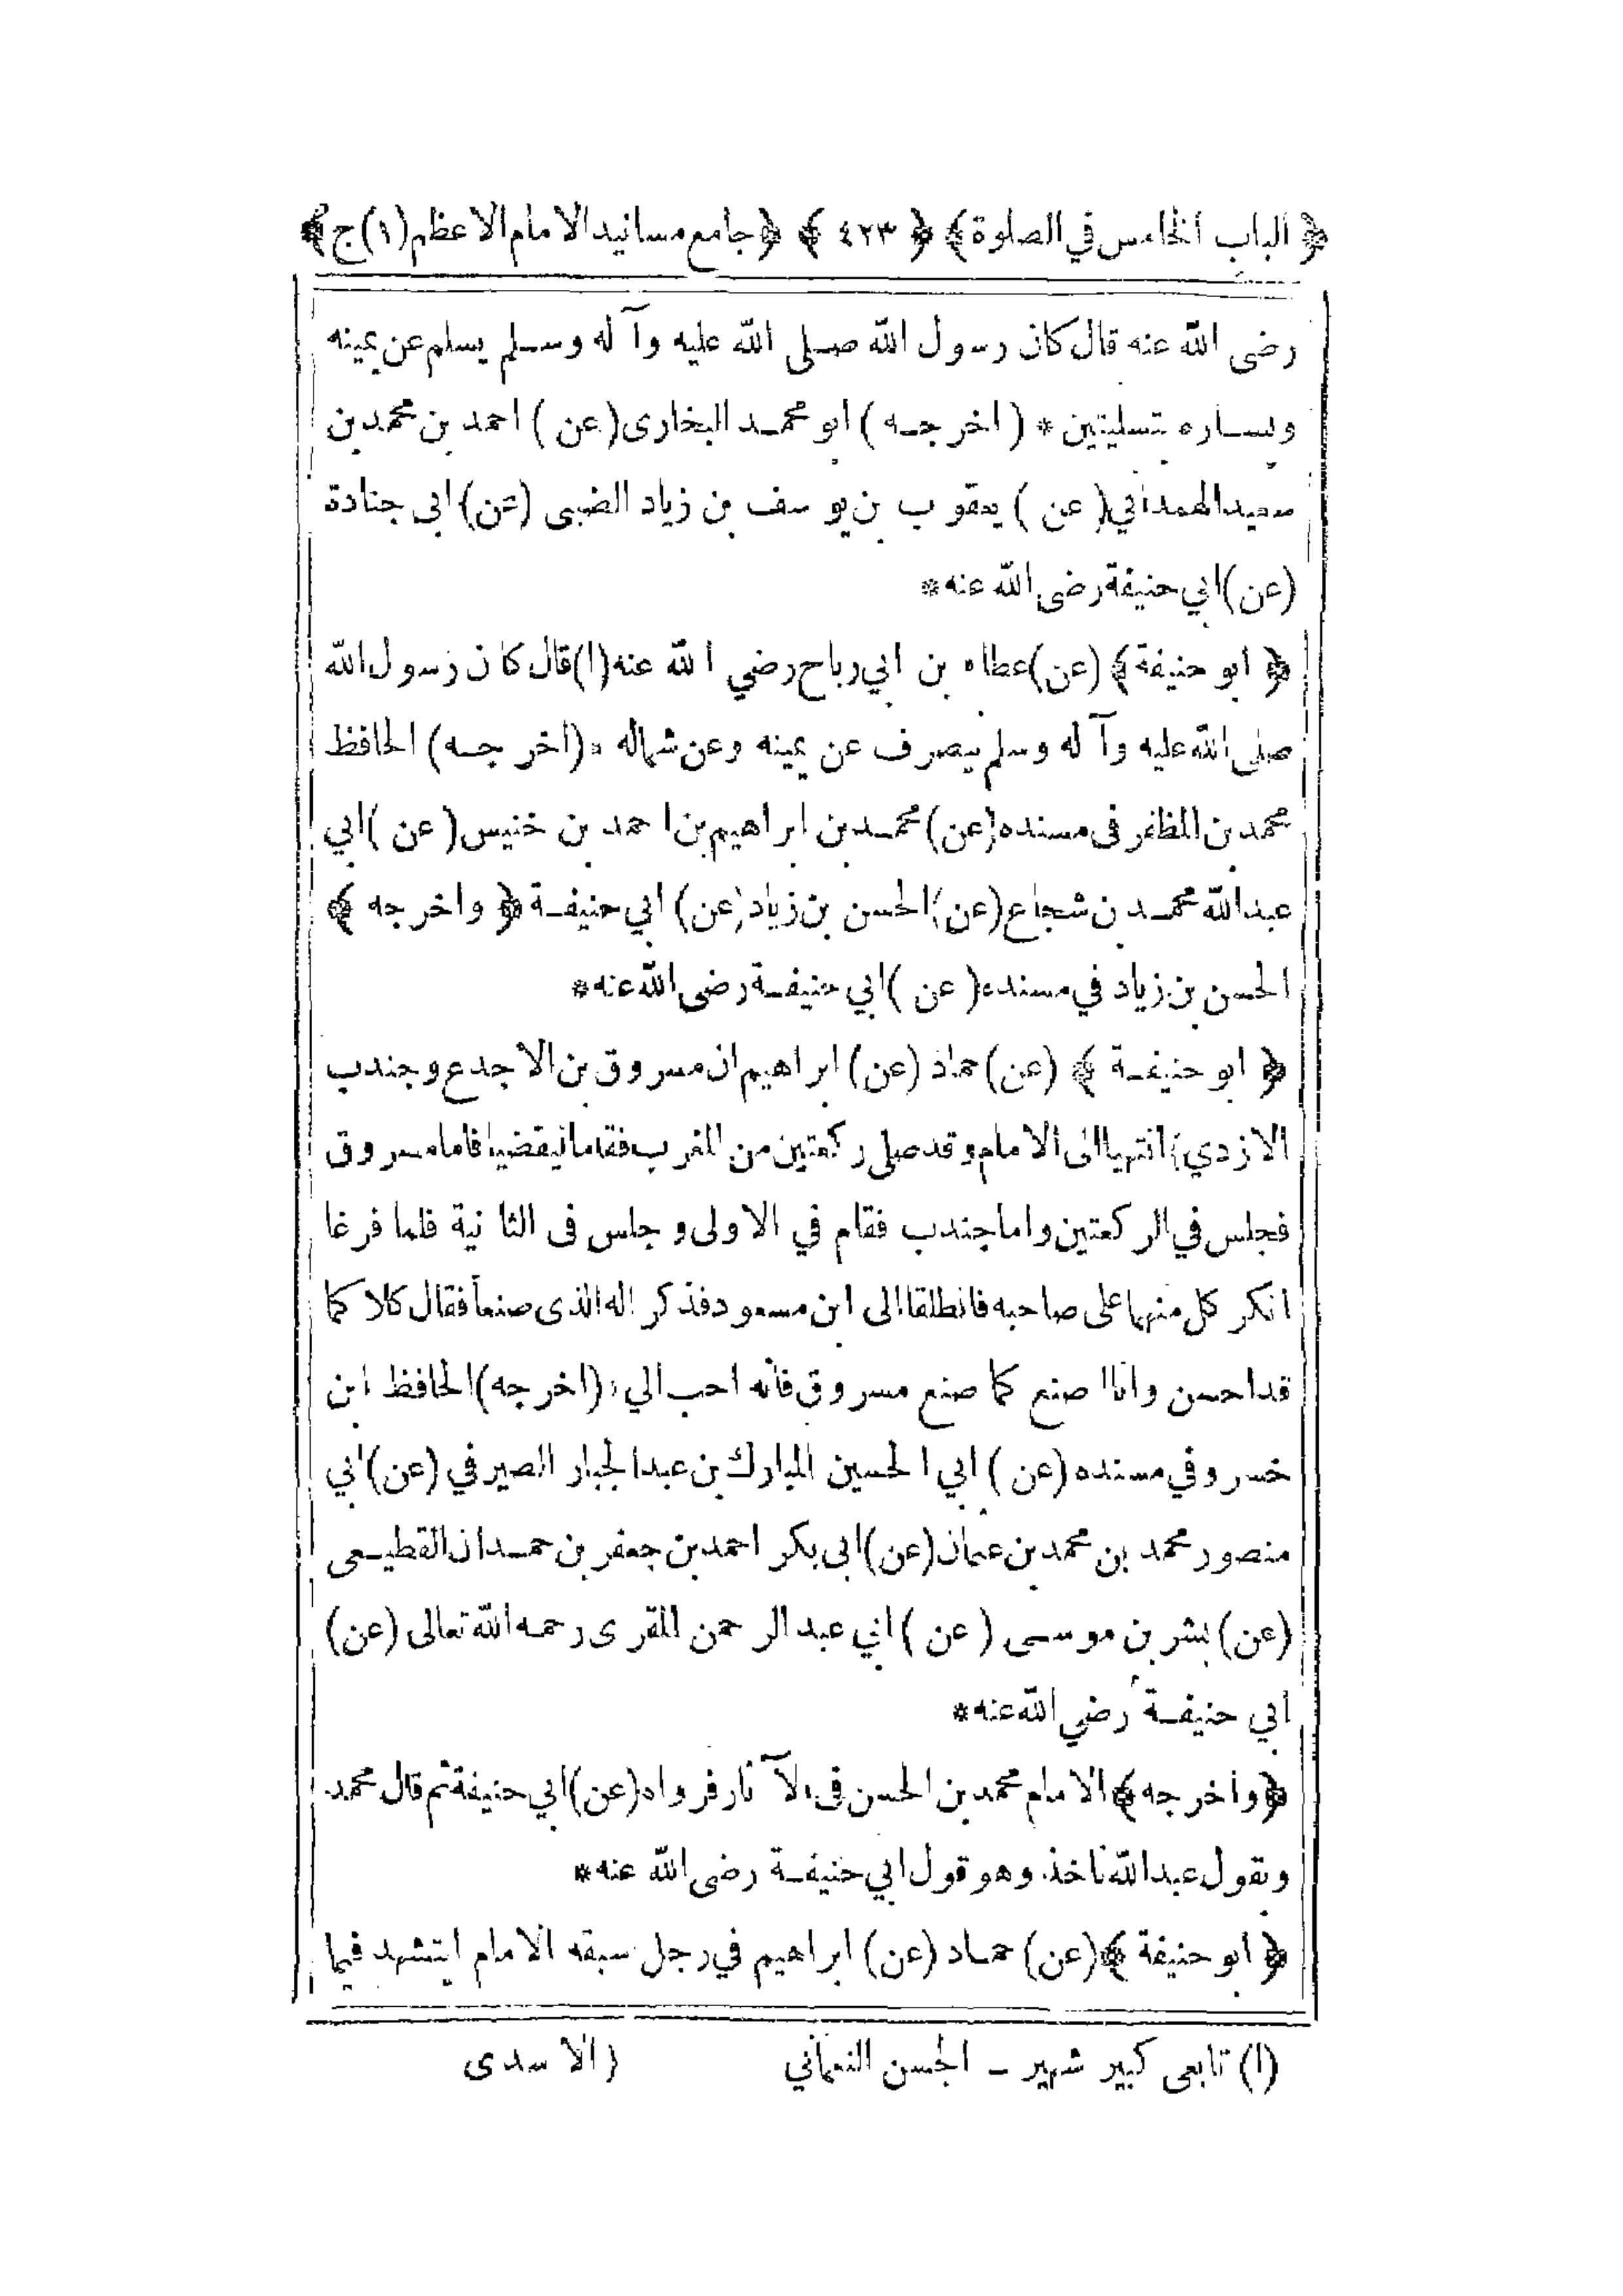 ﴿ الباب الخامس في الصلوة ﴾ ﴿ ٤٢٣ ﴾ ﴿ جامع مسانيد الامام الاعظم (١) ج ﴾
رضى الله عنه قال كان رسول الله صلى الله عليه وآله وسلم يسلم عن يمينه
ويساره تسليتين * ( اخرجه ) ابو محمد البخارى (عن ) احمد بن محمد بن
سعيد الهمداني ( عن ) يعقوب بن يوسف بن زياد الضبى (عن) ابى جنادة
(عن) ابي حنيفة رضى الله عنه *
﴿ ابو حنيفة ﴾ (عن) عطاء بن ابي رباح رضي الله عنه (١) قال كان رسول الله
صلى الله عليه وآله وسلم ينصرف عن يمينه وعن شماله * (اخرجه) الحافظ
محمد بن المظفر فى مسنده (عن) محمد بن ابراهيم بن احمد بن خنيس ( عن ) ابي
عبد الله محمد بن شجاع (عن) الحسن بن زياد (عن) ابي حنيفة ﴿ واخرجه ﴾
الحسن بن زياد في مسنده ( عن ) ابي حنيفة رضى الله عنه *
﴿ ابو حنيفة ﴾ (عن) حماد (عن) ابراهيم ان مسروق بن الاجدع وجندب
الازدي) انتهيا الى الامام وقد صلى ركعتين من المغرب فقاما ليقضيا فاما مسروق
فجلس في الركعتين واما جندب فقام في الاولى وجلس فى الثانية فلما فرغا
انكر كل منهما على صاحبه فانطلقا الى ابن مسعود فذكرا له الذى صنعا فقال كلا كما
قد احسن وانا اصنع كما صنع مسروق فانه احب الي * (اخرجه) الحافظ ابن
خسرو في مسنده (عن ) ابي الحسين المبارك بن عبد الجبار الصيرفي (عن) ابي
منصور محمد بن محمد بن عثمان (عن) ابى بكر احمد بن جعفر بن حمدان القطيعى
(عن) بشر بن موسى ( عن ) ابي عبد الرحمن المقرى رحمه الله تعالى (عن)
ابي حنيفة رضي الله عنه *
﴿ واخرجه ﴾ الامام محمد بن الحسن فى الآثار فرواه (عن) ابي حنيفة ثم قال محمد
وبقول عبد الله ناخذ. وهو قول ابي حنيفة رضى الله عنه *
﴿ ابو حنيفة ﴾ (عن) حماد (عن) ابراهيم في رجل سبقه الامام ايتشهد فيما
(١) تابعى كبير شهير - الحسن النعماني ) الاسدى